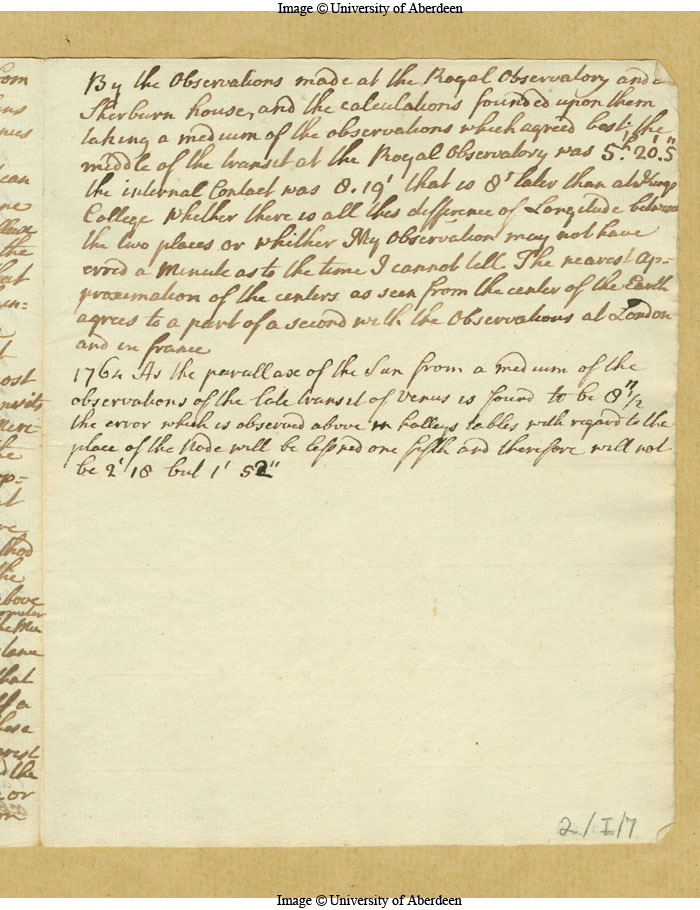 Image © University of Aberdeen
By the Observations made at the Royal Observatory and a
Sherburn house, and the calculations founded upon them
taking a medium of the observations which agreed best, the
middle of the transit at the Royal Observatory was 5.h 20'.5"
the internal Contact was 8.19' that is 8' later than at Kings
College Whether there is all this difference of Longitude between
the two places or whether My Observation may not have
erred a Minute as to the time I cannot tell The nearest ap=
proximation of the centers as seen from the center of the Earth
agrees to a part of a second with the Observations at London
and in france
1764 As the parallaxe of the Sun from a medium of the
observations of the late transit of Venus is found to be 8"1/2
the error which is observed above in halleys tables with regard to the
place of the Node will be lessned one fifth and therefore will not
be 2' 18 but 1' 52"
2/I/7
Image © University of Aberdeen